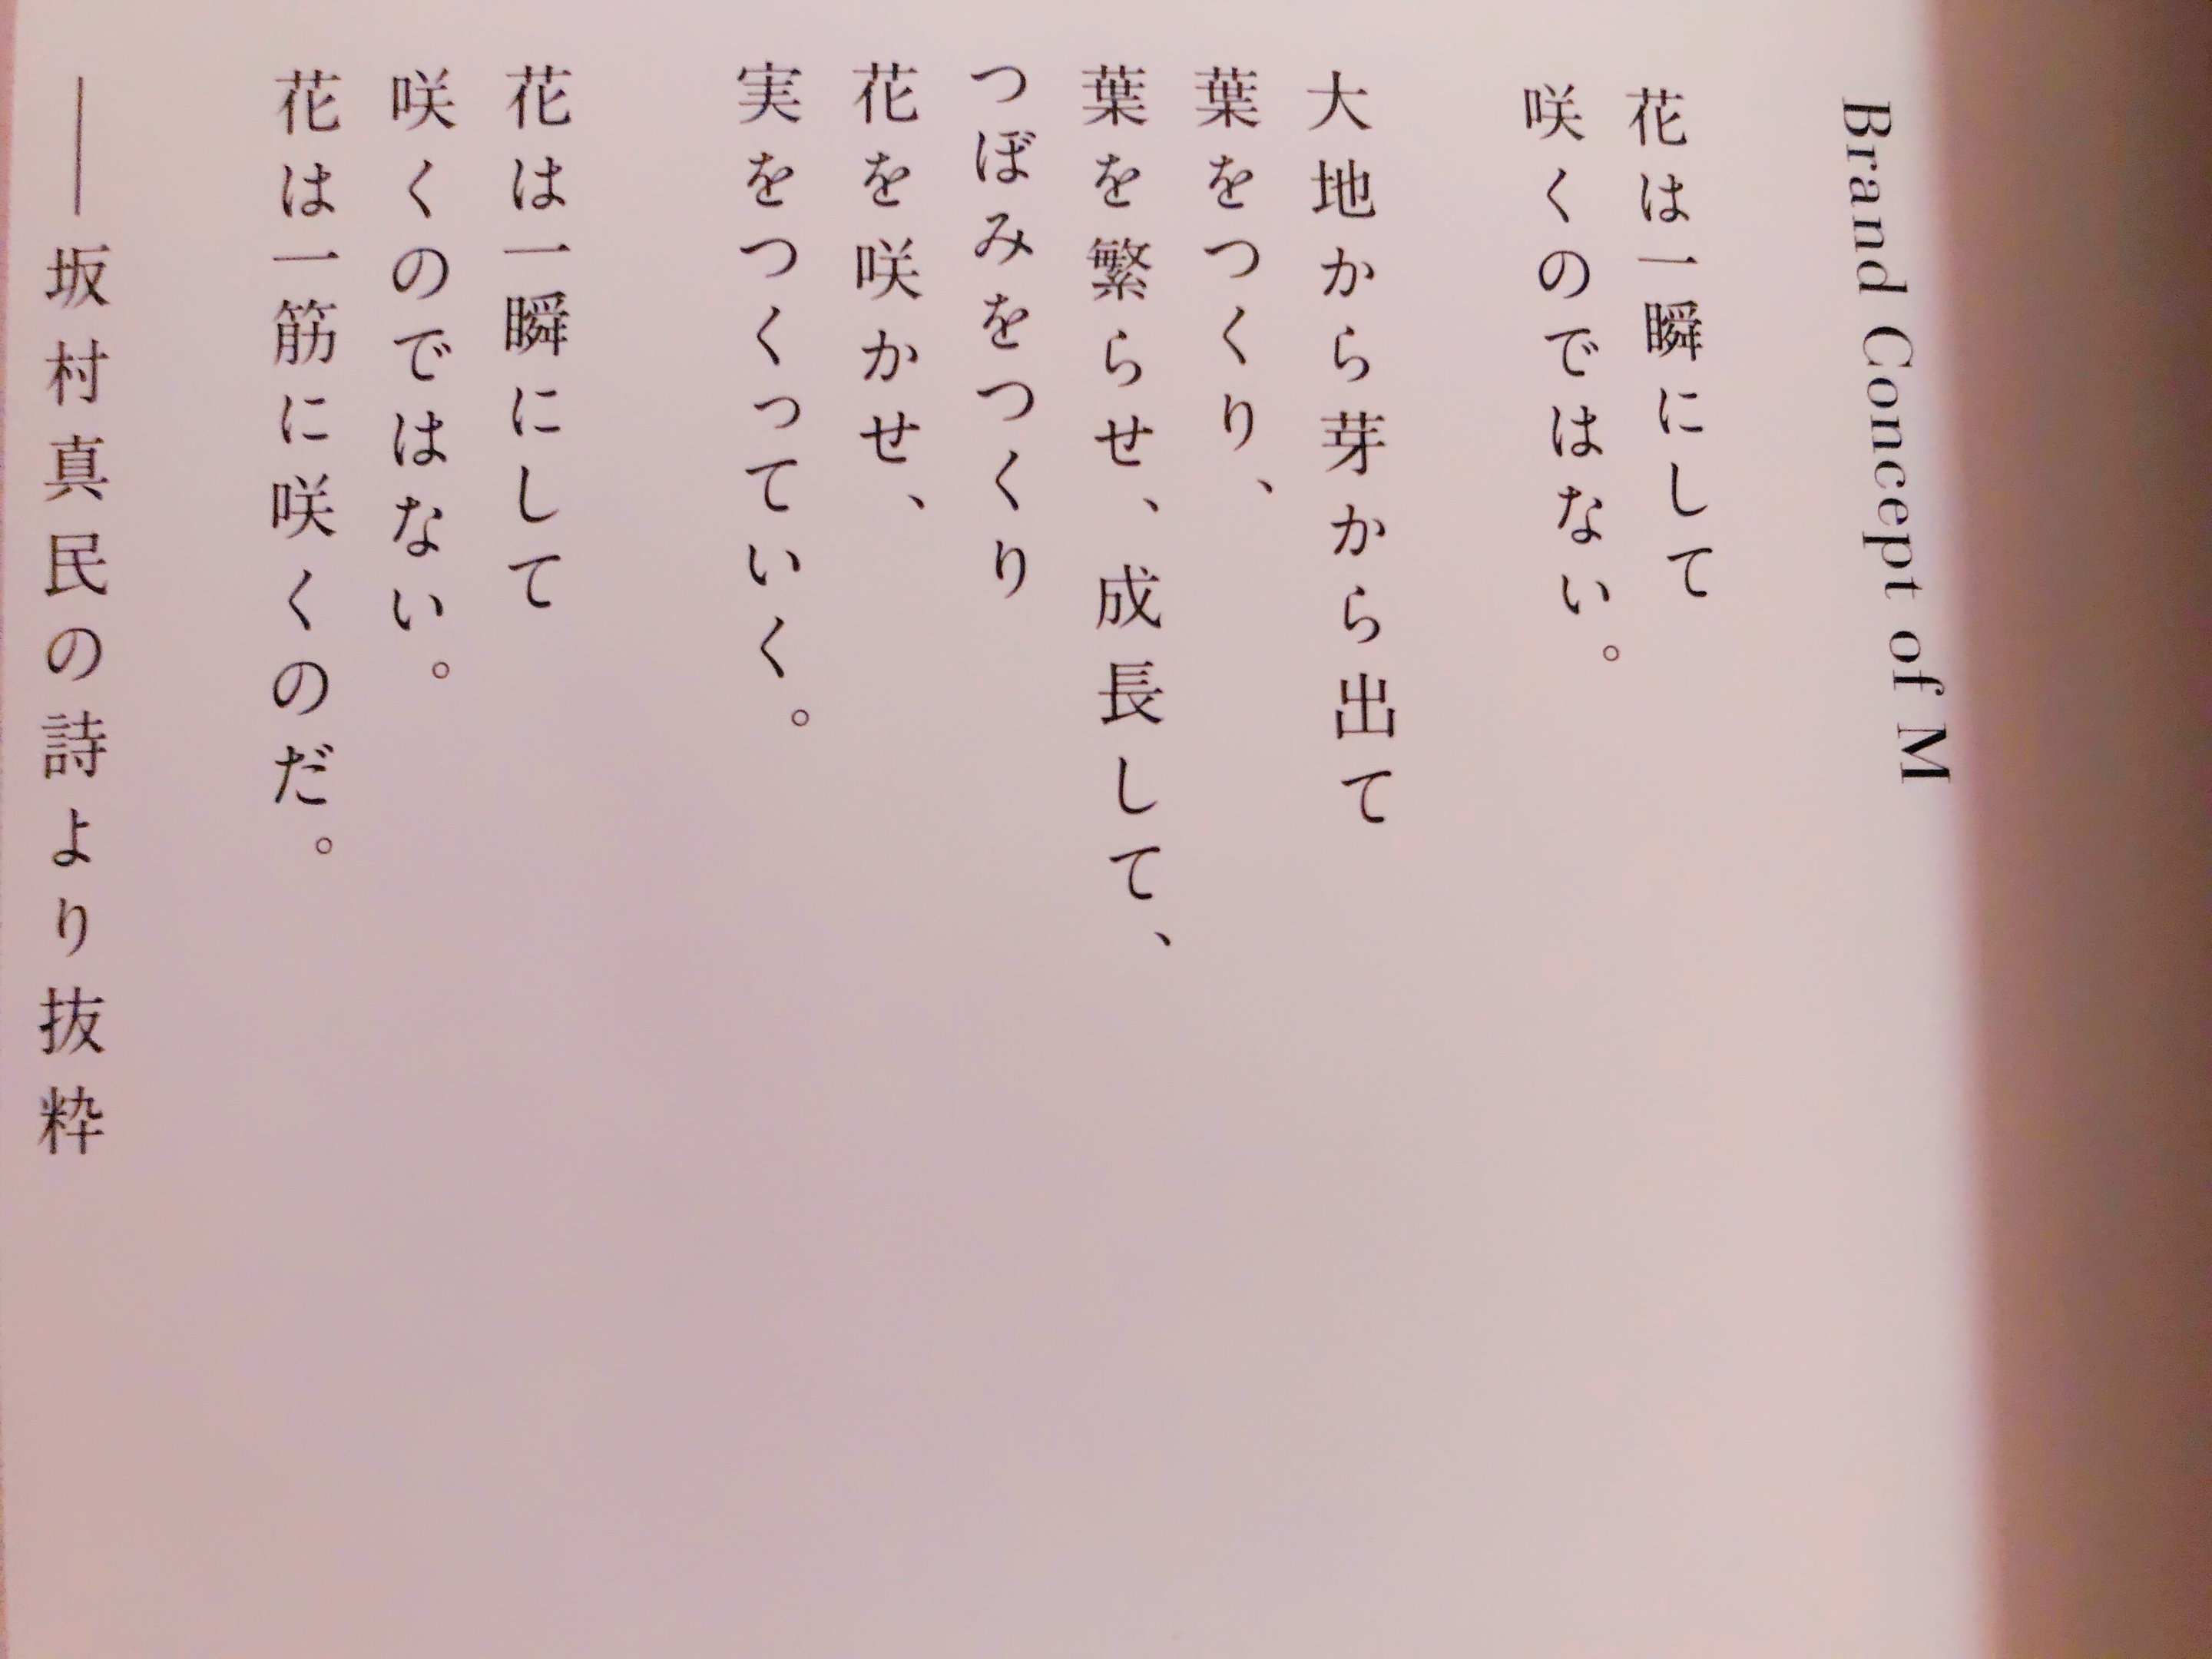 Brand Concept of M
花は一瞬にして
咲くのではない。
大地から芽から出て
葉をつくり、
葉を繁らせ、成長して、
つぼみをつくり
花を咲かせ、
実をつくっていく。
花は一瞬にして
咲くのではない。
花は一筋に咲くのだ。
――坂村真民の詩より抜粋